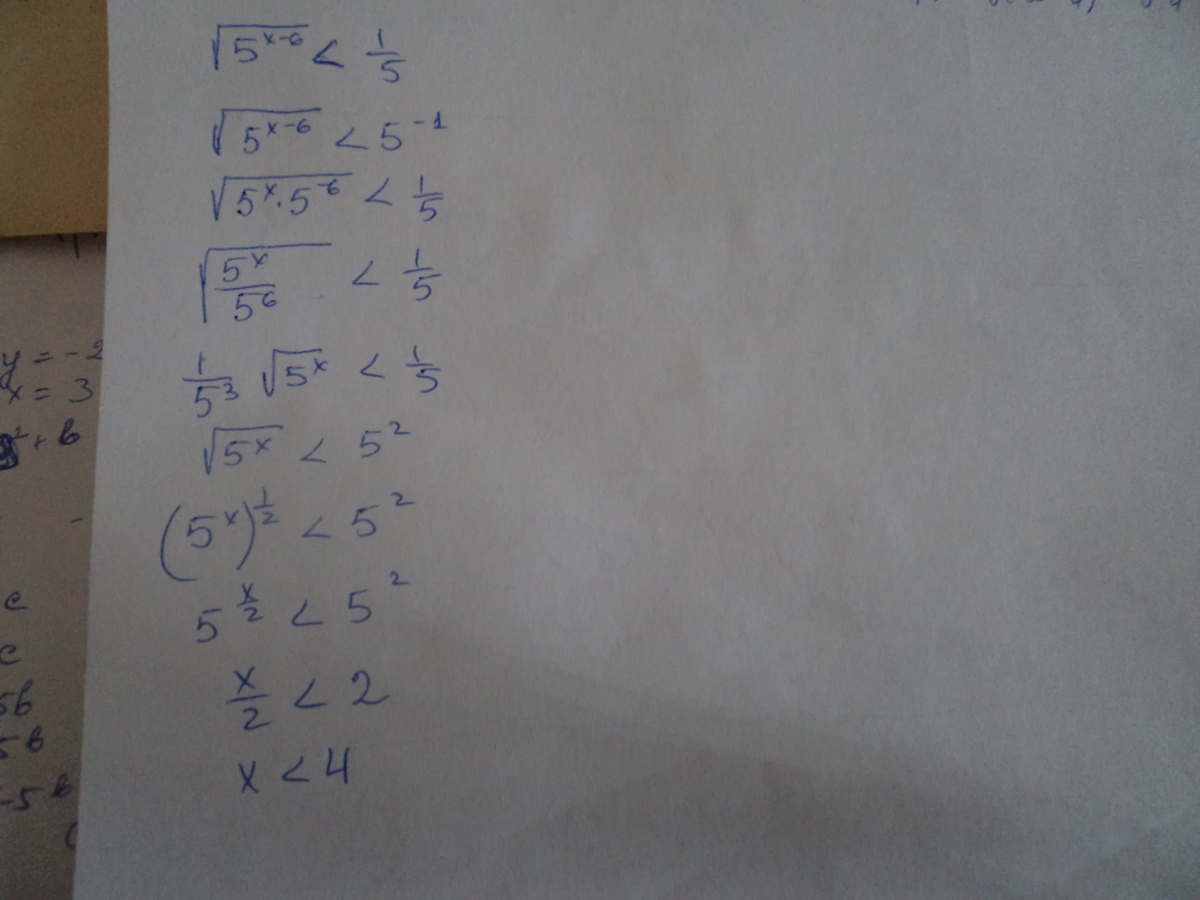 √(5^(x-6)) < 1/5
√(5^(x-6)) < 5^(-1)
√(5^x · 5^(-6)) < 1/5
√(5^x/5^6) < 1/5
1/5^3 √(5^x) < 1/5
√(5^x) < 5^2
(5^x)^(1/2) < 5^2
5^(x/2) < 5^2
x/2 < 2
x < 4
y = -2
x = 3
+ b
-
c
c
5b
5b
-5b